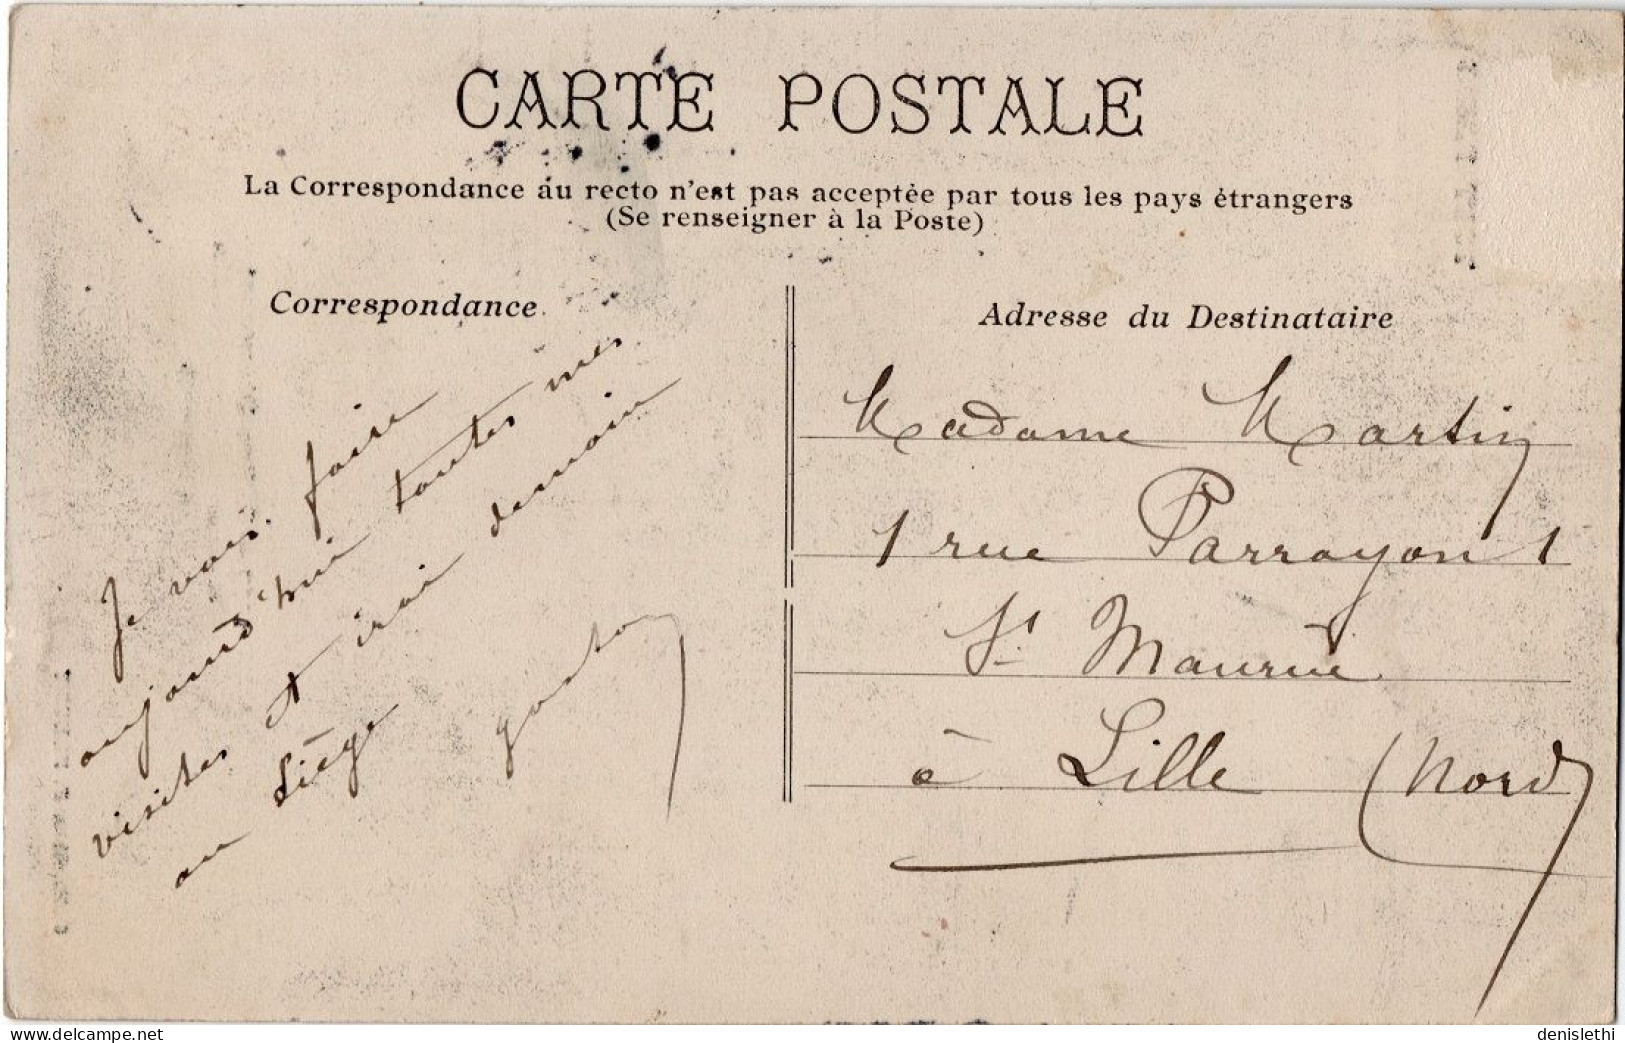 CARTE POSTALE
La Correspondance au recto n'est pas acceptée par tous les pays étrangers
(Se renseigner à la Poste)
Correspondance
Je vais faire
aujourd'hui toutes mes
visites et irai demain
au Liège
gaston
Adresse du Destinataire
Madame Martin
1 rue Parrayon 1
St Maurice
à Lille (Nord)
www.delcampe.net
denislethi